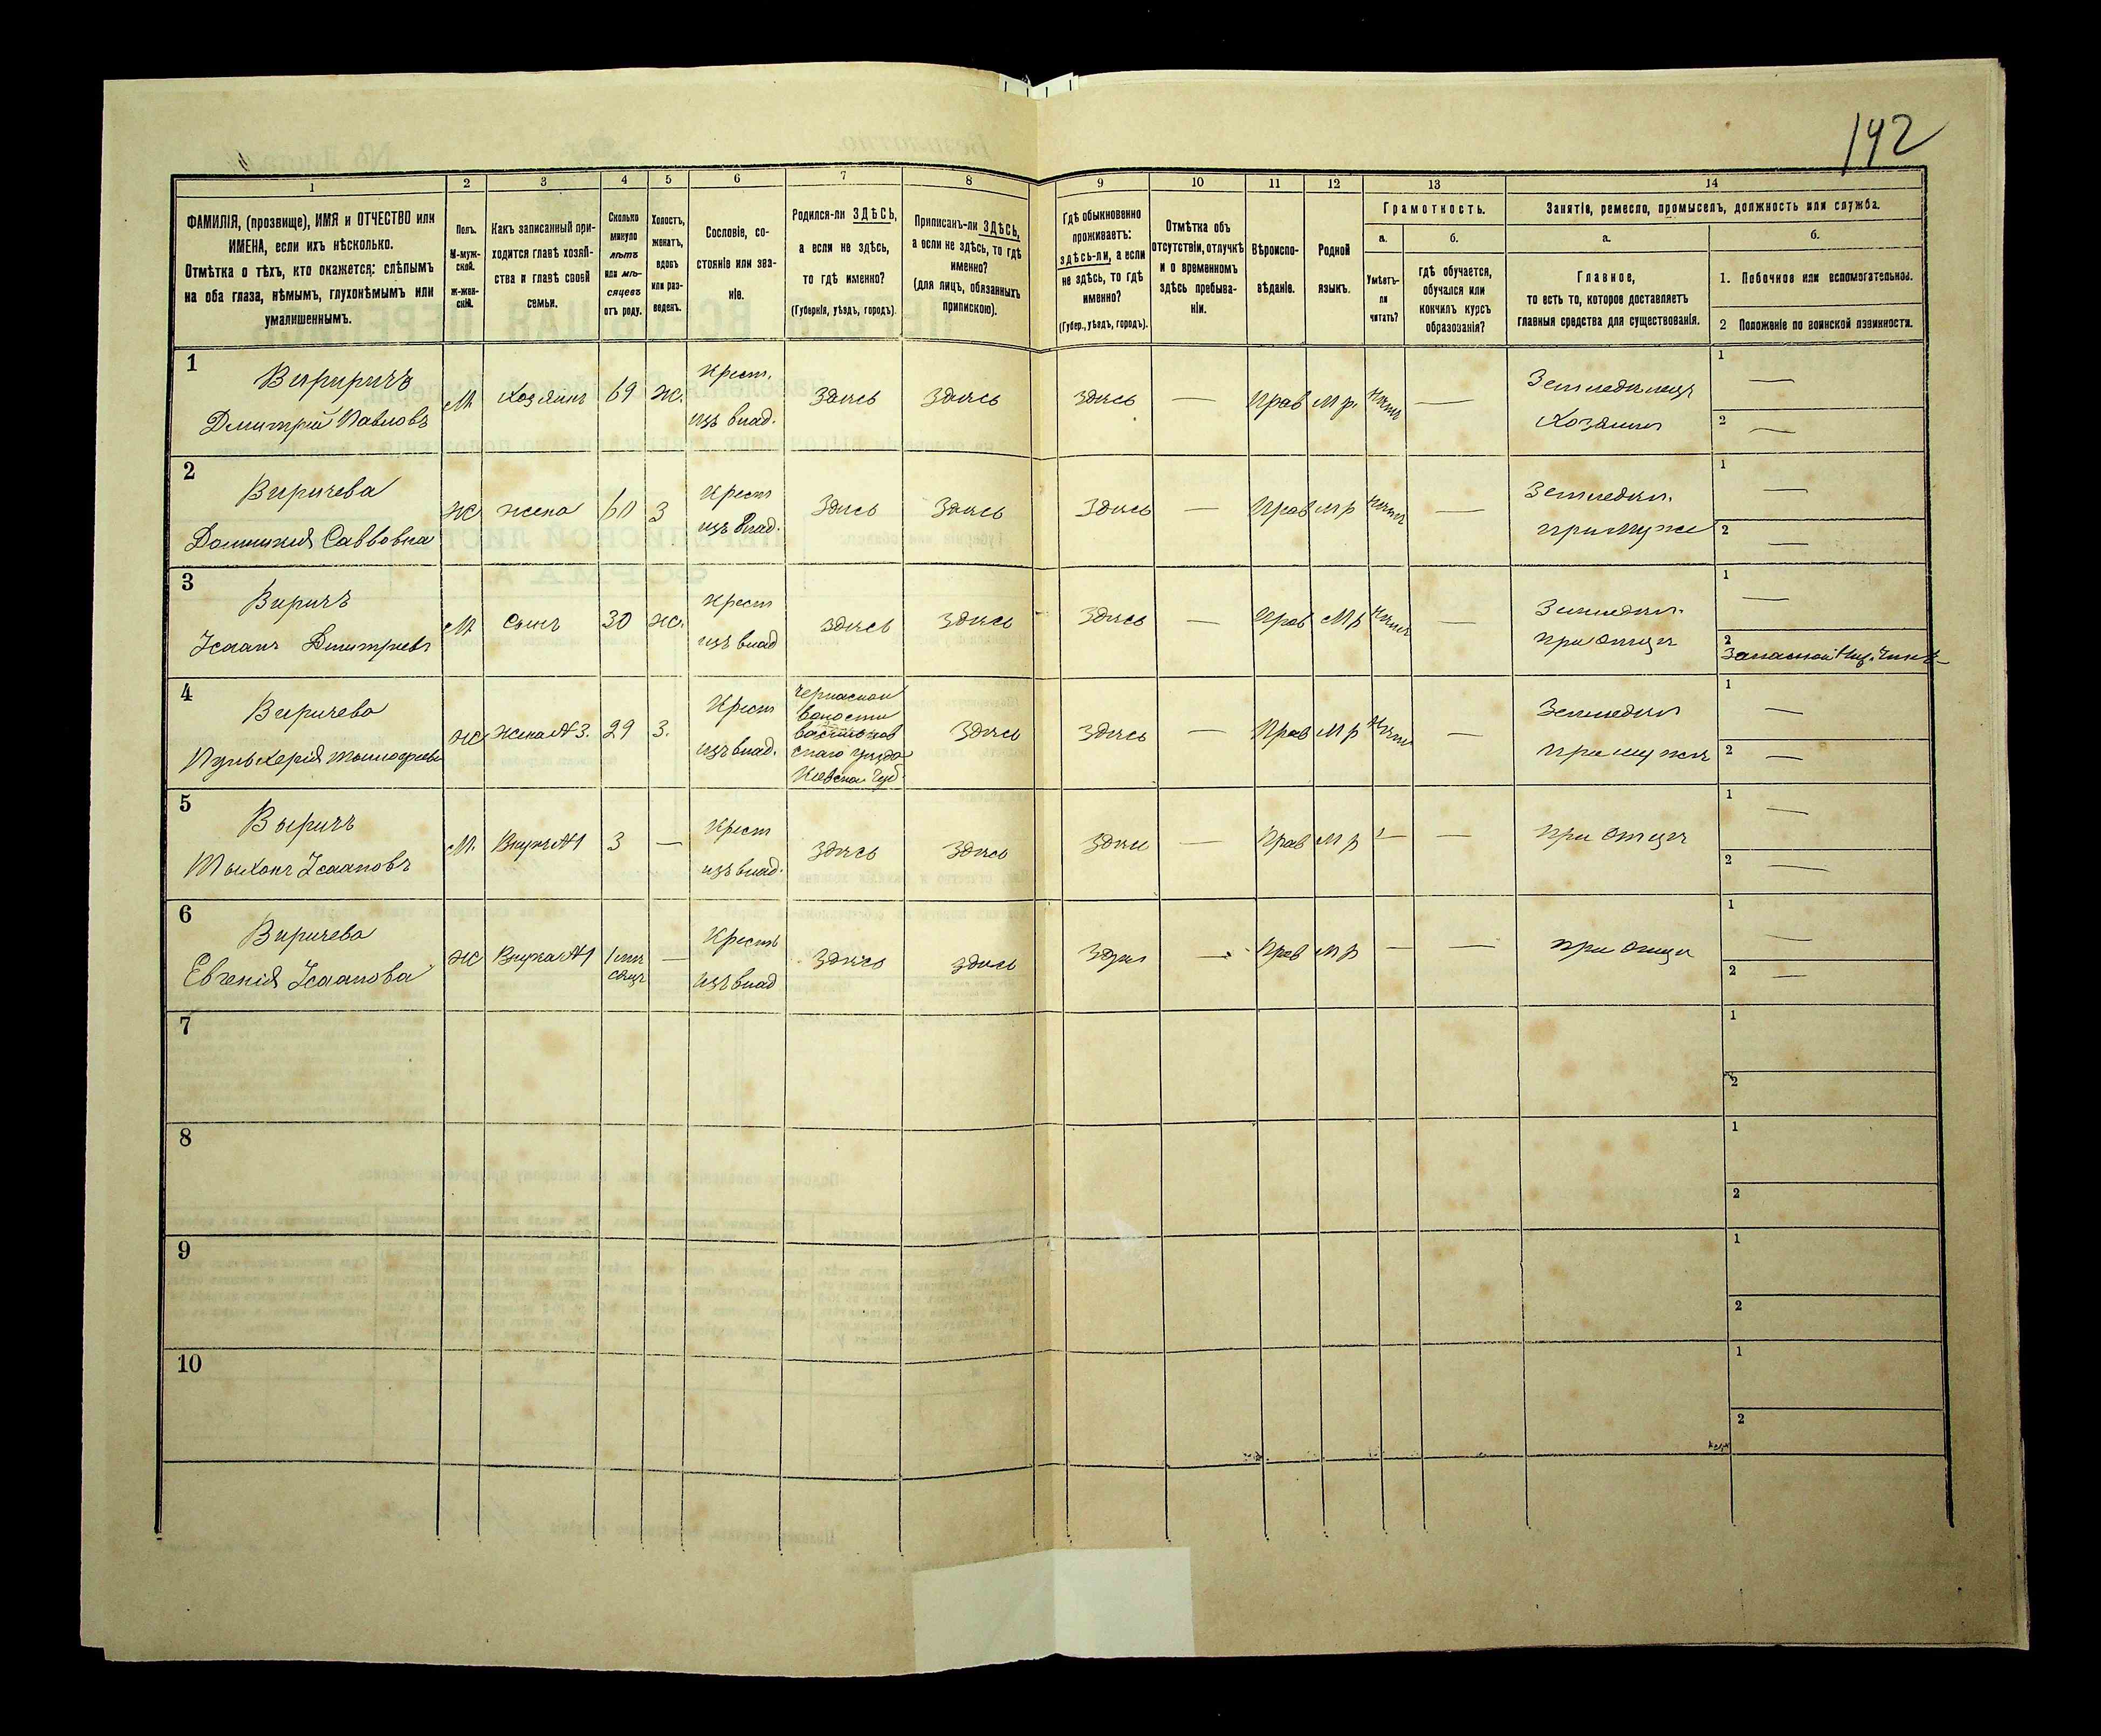 142
1
2
3
4
5
6
7
8
9
10
11
12
13
14
ФАМИЛІЯ, (прозвище), ИМЯ и ОТЧЕСТВО или
ИМЕНА, если ихъ нѣсколько.
Отмѣтка о тѣхъ, кто окажется: слѣпымъ
на оба глаза, нѣмымъ, глухонѣмымъ или
умалишеннымъ.
Полъ.
М-муж-
ской.
ж-жен-
скій.
Какъ записанный при-
ходится главѣ хозяй-
ства и главѣ своей
семьи.
Сколько
минуло
лѣтъ
или мѣ-
сяцевъ
отъ роду.
Холостъ,
женатъ,
вдовъ
или раз-
веденъ.
Сословіе, со-
стояніе или зва-
ніе.
Родился-ли ЗДѢСЬ,
а если не здѣсь,
то гдѣ именно?
(Губернія, уѣздъ, городъ).
Приписанъ-ли ЗДѢСЬ,
а если не здѣсь, то гдѣ
именно?
(для лицъ, обязанныхъ
припискою).
Гдѣ обыкновенно
проживаетъ:
здѣсь-ли, а если
не здѣсь, то гдѣ
именно?
(Губер., уѣздъ, городъ).
Отмѣтка объ
отсутствіи, отлучкѣ
и о временномъ
здѣсь пребыва-
ніи.
Вѣроиспо-
вѣданіе.
Родной
языкъ.
Грамотность.
а.
Умѣетъ-
ли
читать?
б.
гдѣ обучается,
обучался или
кончилъ курсъ
образованія?
Занятіе, ремесло, промыселъ, должность или служба.
а.
Главное,
то есть то, которое доставляетъ
главныя средства для существованія.
б.
1. Побочное или вспомогательное.
2 Положеніе по воинской повинности.
1
Димитрій Павловъ
М
Хозяинъ
69
Ж.
Крест.
изъ влад.
Здѣсь
Здѣсь
здѣсь
—
Прав
М р.
Нѣтъ
—
Земледѣлецъ
Хозяинъ
1 —
2 —
2
Виричева
Домникія Саввовна
Ж
жена
60
З
Крест
изъ влад.
Здѣсь
Здѣсь
Здѣсь
—
Прав
М р
Нѣтъ
—
Земледѣл.
при мужѣ
1 —
2 —
3
Виричъ
Исаакъ Димитріевъ
М
Сынъ
30
Ж.
Крест
изъ влад
здѣсь
здѣсь
Здѣсь
—
Прав
М р
Нѣтъ
—
Земледѣл.
при отцѣ
1 —
2
Запасной Ниж. Чинъ
4
Виричева
Пульхерія
Ж
Жена №3.
29
З.
Крест
изъ влад.
волости
скаго уѣзда
Кіевской Губ.
Здѣсь
здѣсь
—
Прав
М р
Нѣтъ
—
Земледѣл
при мужѣ
1 —
2 —
5
Выричъ
Тыхонъ Исааковъ
М.
Внукъ №1
3
—
Крест
изъ влад.
Здѣсь
Здѣсь
Здѣсь
—
Прав
М р
—
—
при отцѣ
1 —
2 —
6
Виричева
Евгенія Исаакова
Ж
Внучка №1
1 мѣ
сяцъ
—
Крестъ
изъ влад
Здѣсь
здѣсь
Здѣсь
—
Прав
М р
—
—
при отцѣ
1 —
2 —
7
1
2
8
1
2
9
1
2
10
1
2